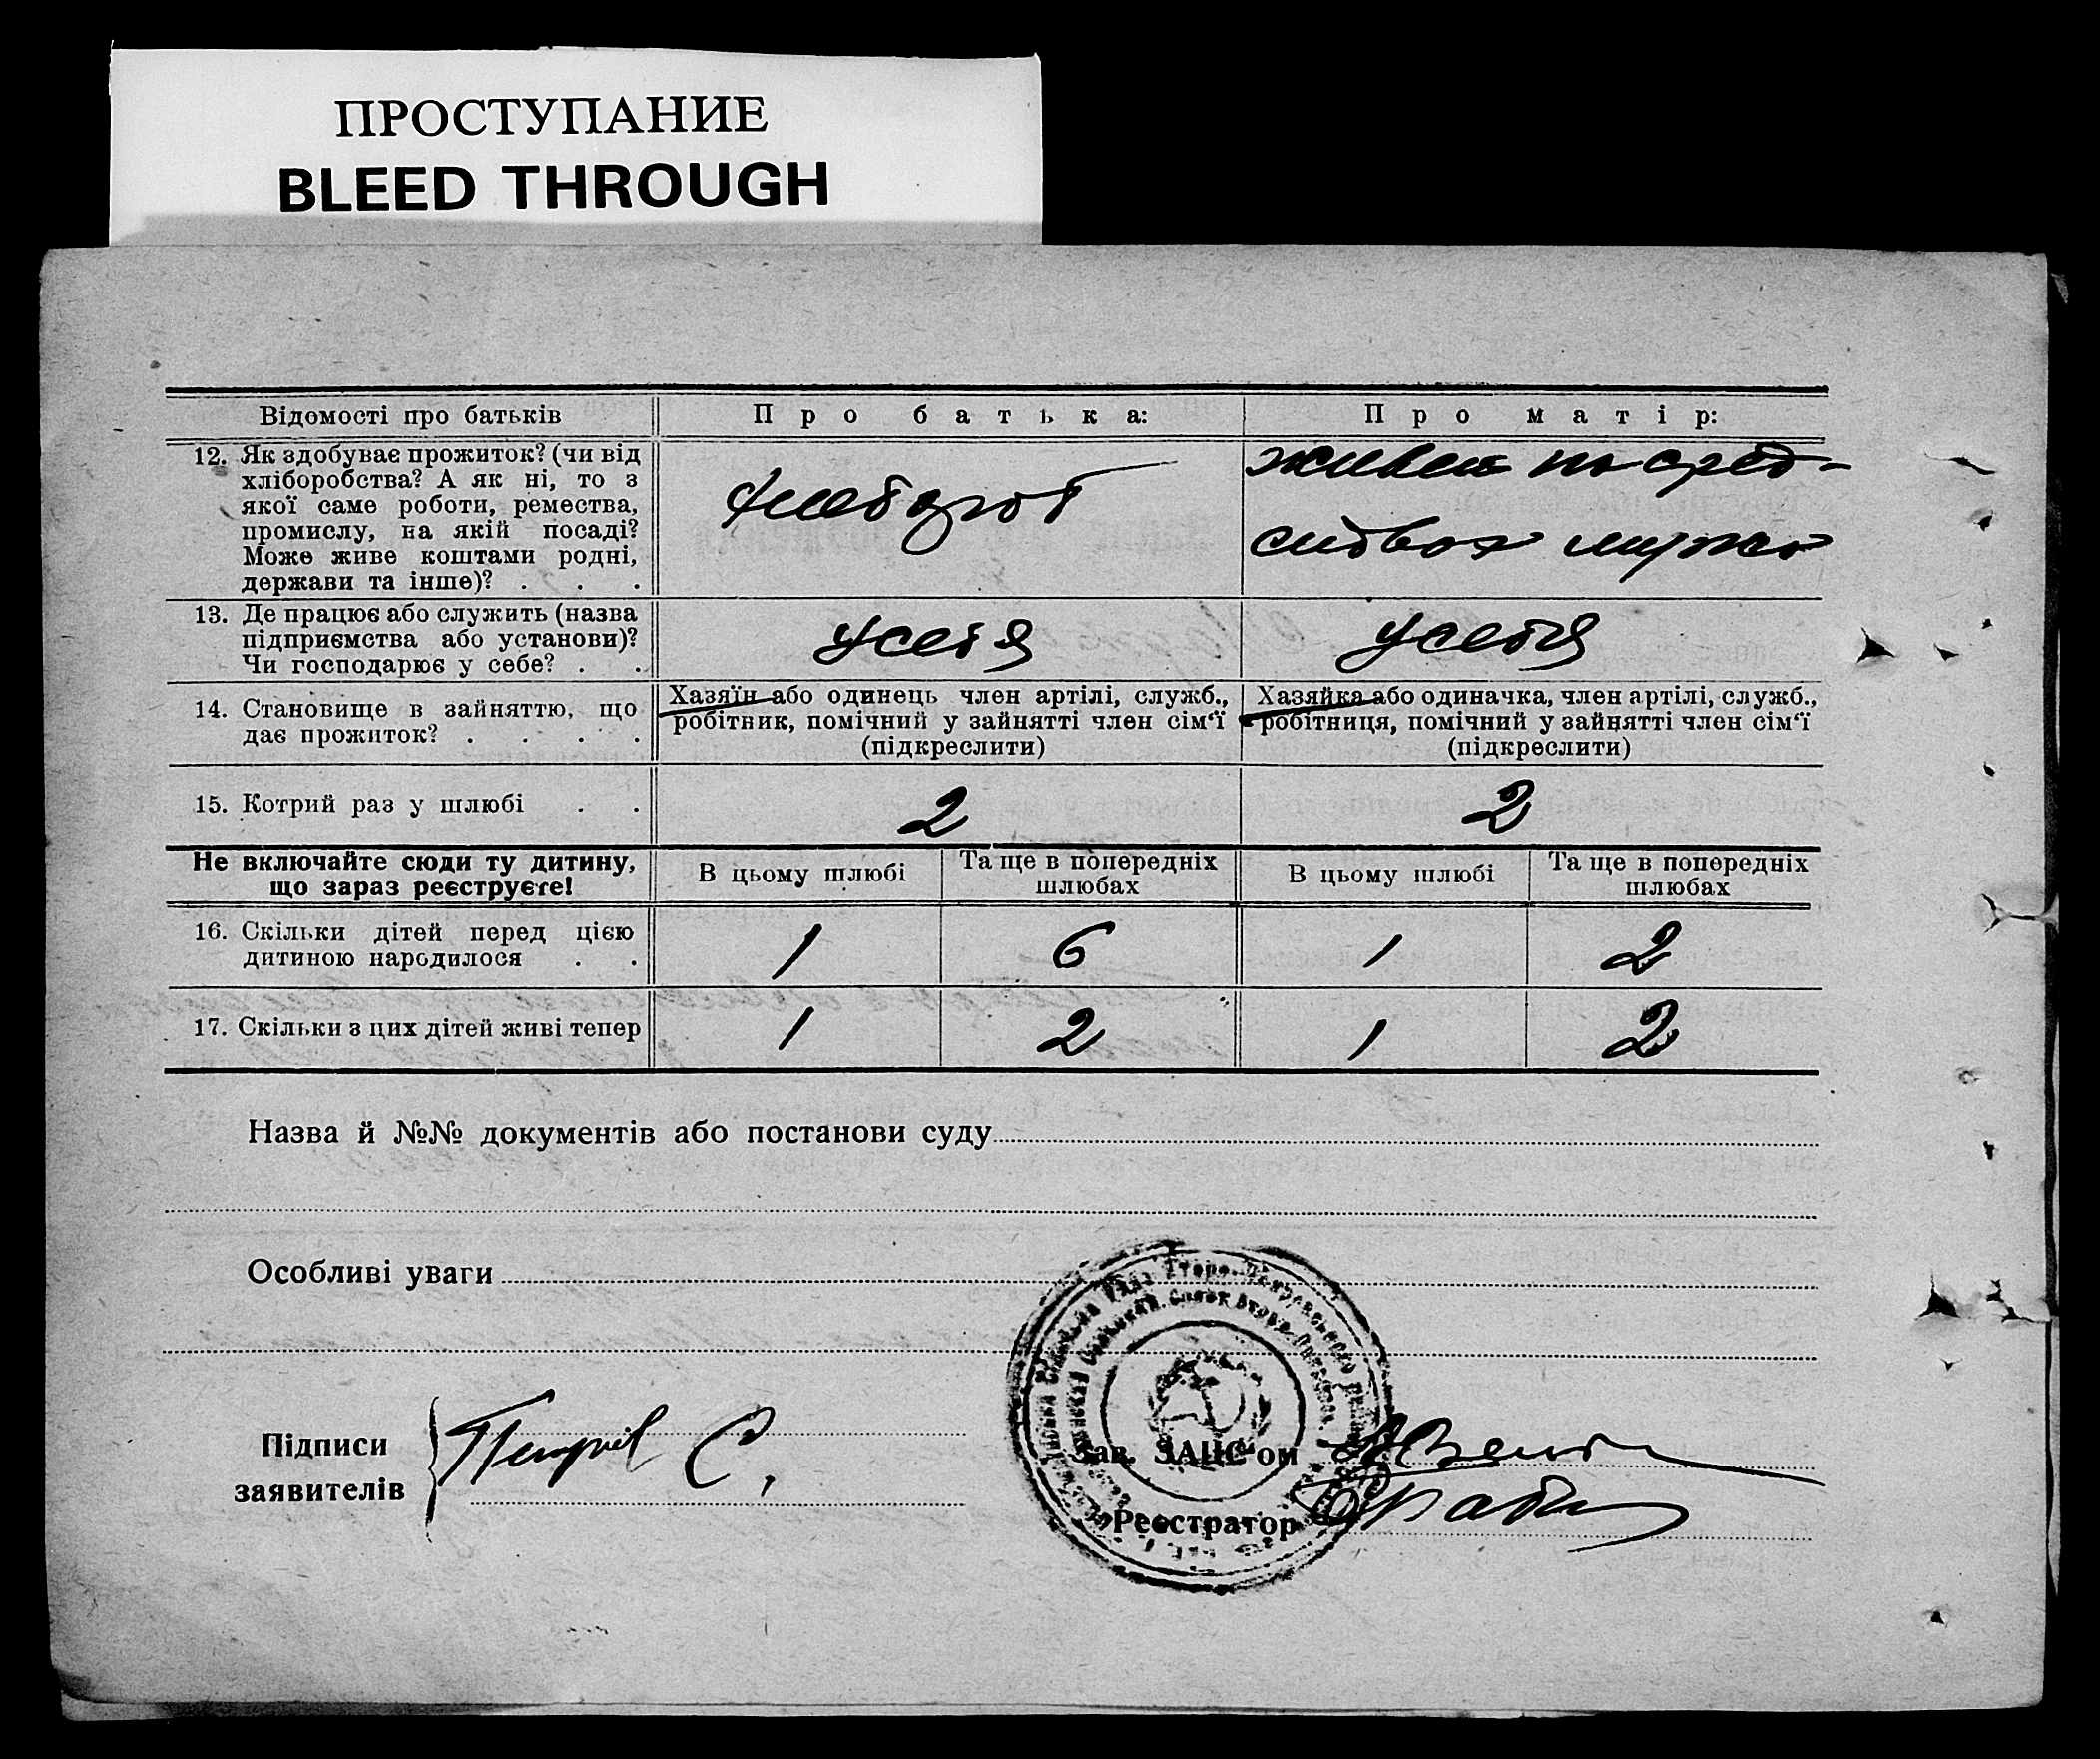 ПРОСТУПАНИЕ
BLEED THROUGH
Відомості про батьків
Про батька:
Про матір:
12. Як здобуває прожиток? (чи від
хліборобства? А як ні, то з
якої саме роботи, ремества,
промислу, на якій посаді?
Може живе коштами родні,
держави та інше)? . . .
хлебороб
живет на сред-
ствах мужа
13. Де працює або служить (назва
підприємства або установи)?
Чи господарює у себе? . .
у себя
у себя
14. Становище в зайняттю, що
дає прожиток? . . . .
Хазяїн або одинець член артілі, служб.,
робітник, помічний у зайнятті член сім'ї
(підкреслити)
Хазяйка або одиначка, член артілі, служб.,
робітниця, помічний у зайнятті член сім'ї
(підкреслити)
15. Котрий раз у шлюбі . .
2
2
Не включайте сюди ту дитину,
що зараз реєструєте!
В цьому шлюбі
Та ще в попередніх
шлюбах
В цьому шлюбі
Та ще в попередніх
шлюбах
16. Скільки дітей перед цією
дитиною народилося . .
1
6
1
2
17. Скільки з цих дітей живі тепер
1
2
1
2
Назва й №№ документів або постанови суду
Особливі уваги
Підписи
заявителів
С.
Зав. ЗАЦС'ом
Реєстратор